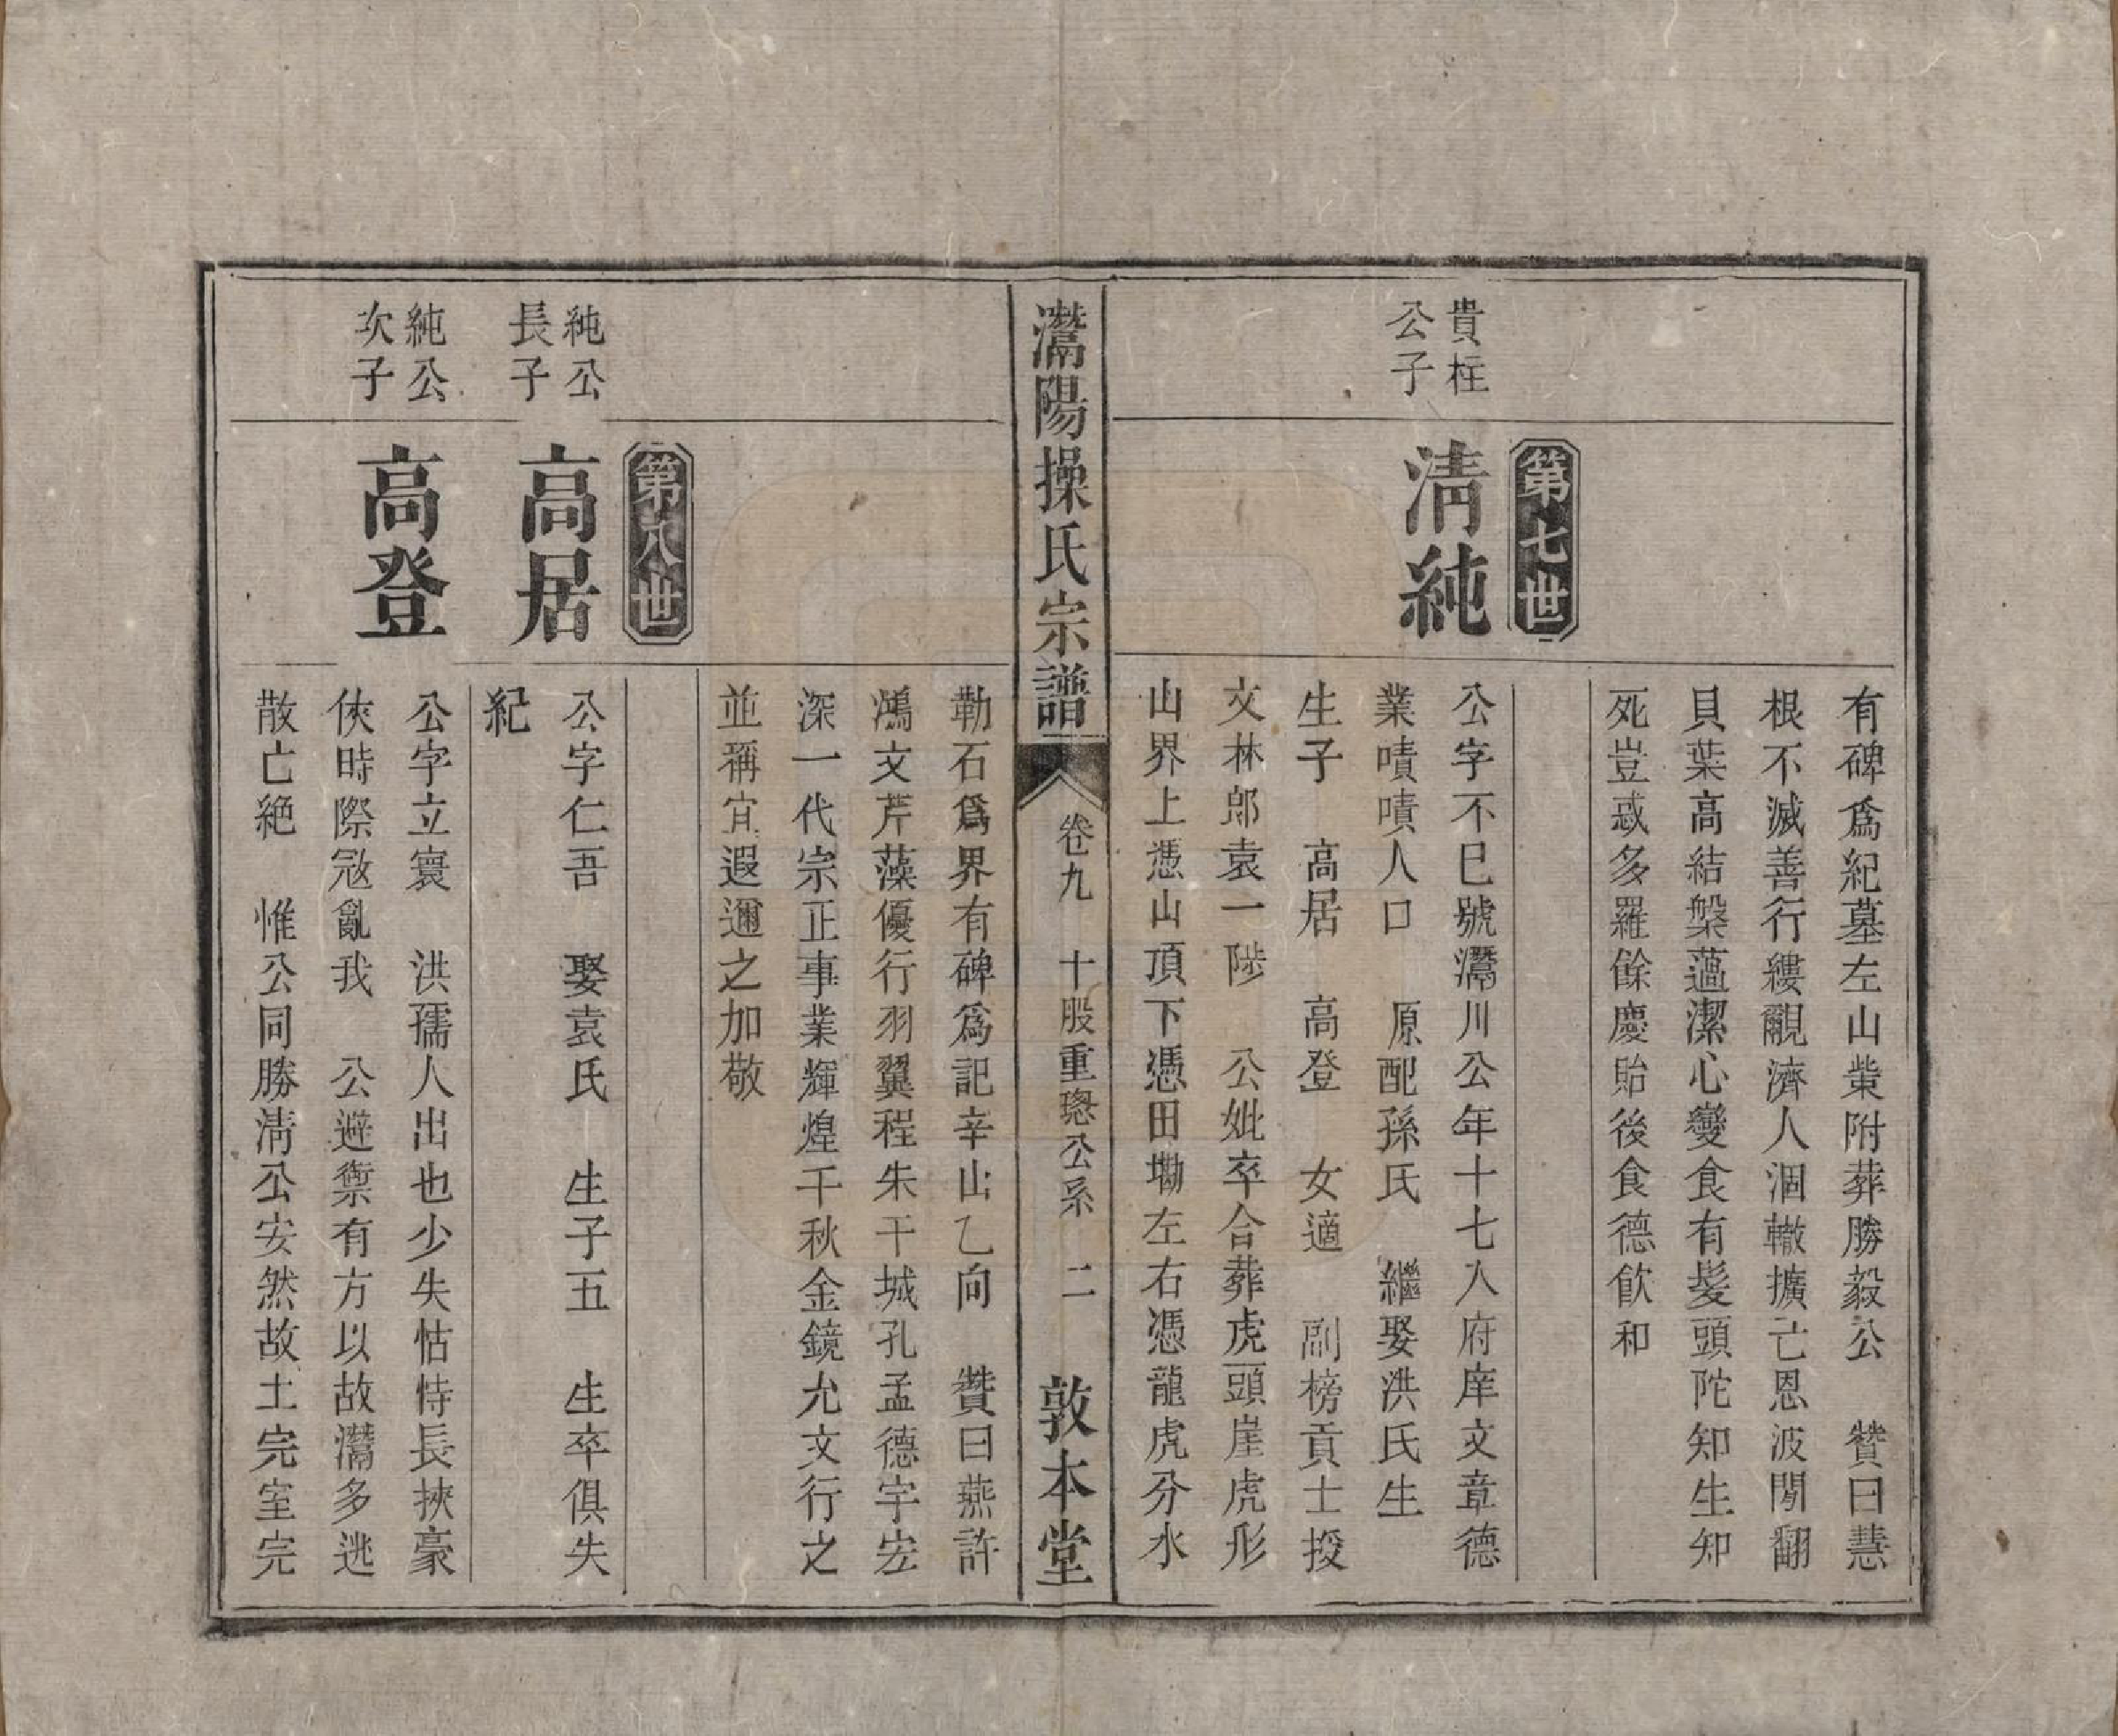 有碑爲紀墓左山葉附葬勝毅公　贊曰慧
根不滅善行縷覼濟人涸轍擴亡恩波閒翻
貝葉高結槃薀潔心變食有髮頭陀知生知
死豈惑多羅餘慶貽後食德飲和
第七世
貴柱
公子
清純
公字不巳號灊川公年十七入府庠文章德
業嘖嘖人口　原配孫氏　繼娶洪氏生
生子　高居　高登　女適　副榜貢士授
文林郎袁一陟　公妣卒合葬虎頭崖虎形
山界上憑山頂下憑田塝左右憑龍虎分水
灊陽操氏宗譜
卷九　十股重璁公系　二
敦本堂
勒石爲界有碑爲記辛山乙向　贊曰燕許
鴻文芹藻優行羽翼程朱干城孔孟德宇宏
深一代宗正事業輝煌千秋金鏡允文行之
並稱宜遐邇之加敬
第八世
純公
長子
高居
公字仁吾　娶袁氏　生子五　生卒俱失
紀
純公
次子
高登
公字立寰　洪孺人出也少失怙恃長挾豪
俠時際冦亂我　公避禦有方以故灊多逃
散亡絕　惟公同勝淸公安然故土完室完